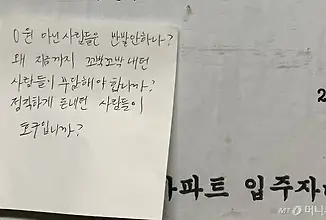 0원 아닌사람들은 반발안하나?
왜 지금까지 꼬박꼬박 내던
사람들이 부담해야 합니까?
정직하게 돈내던 사람들이
호구입니까?
2
아파트 입주자
MT 머니